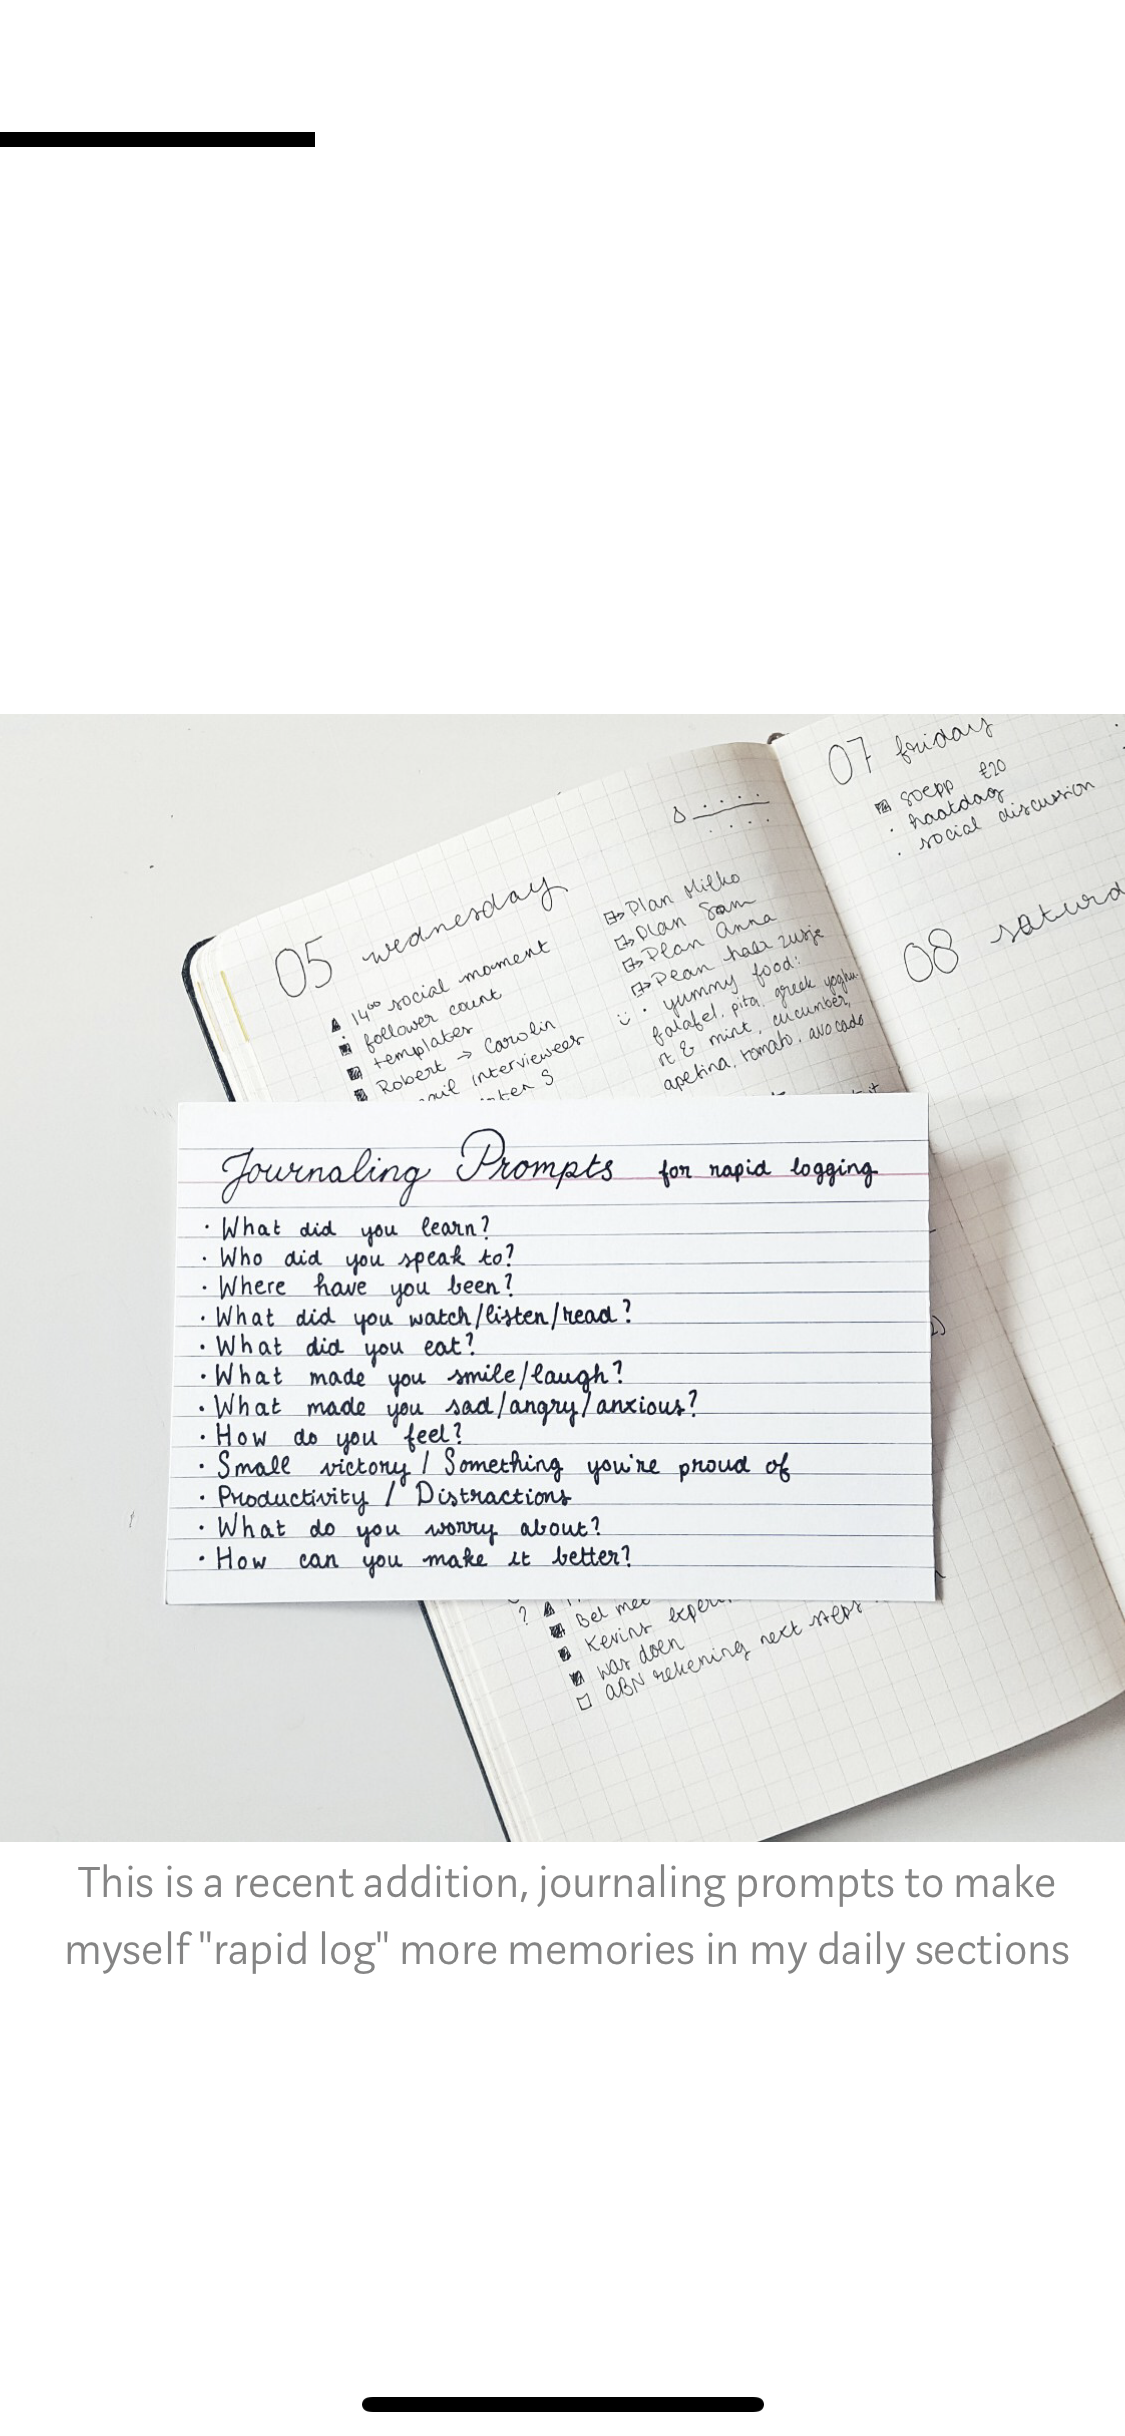 05 wednesday
14⁰⁰ social moment
follower count
templates
Robert → Carolin
interviewees
S
Plan Milko
Plan Sam
Plan Anna
Plan haar zusje
yummy food:
falafel, pita, greek yoghu-
rt & mint, cucumber,
apetina, tomato, avocado
07 friday
soepp £20
haatdag
social discussion
08 saturd
Journaling Prompts for rapid logging
· What did you learn?
· Who did you speak to?
· Where have you been?
· What did you watch/listen/read?
· What did you eat?
· What made you smile/laugh?
· What made you sad/angry/anxious?
· How do you feel?
· Small victory / Something you're proud of
· Productivity / Distractions
· What do you worry about?
· How can you make it better?
?
Bel met
Kevins
was doen
ABN rekening next steps
This is a recent addition, journaling prompts to make
myself "rapid log" more memories in my daily sections